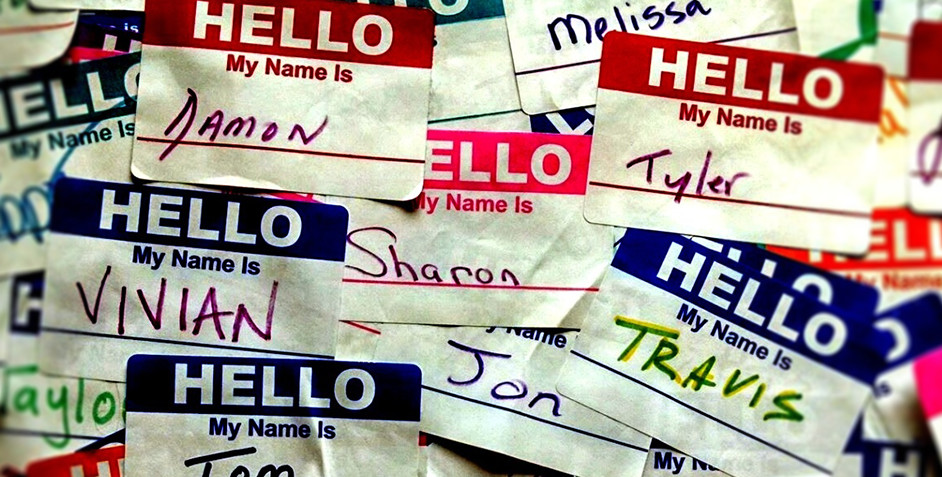 HELLO
My Name Is
DAMON
Melissa
HELLO
My Name Is
Tyler
ELLO
My Name Is
ELLO
My Name Is
Sharon
HELLO
My Name Is
VIVIAN
HELLO
My Name Is
TRAVIS
My Name
Jon
Taylo
HELLO
My Name Is
Tom
My N